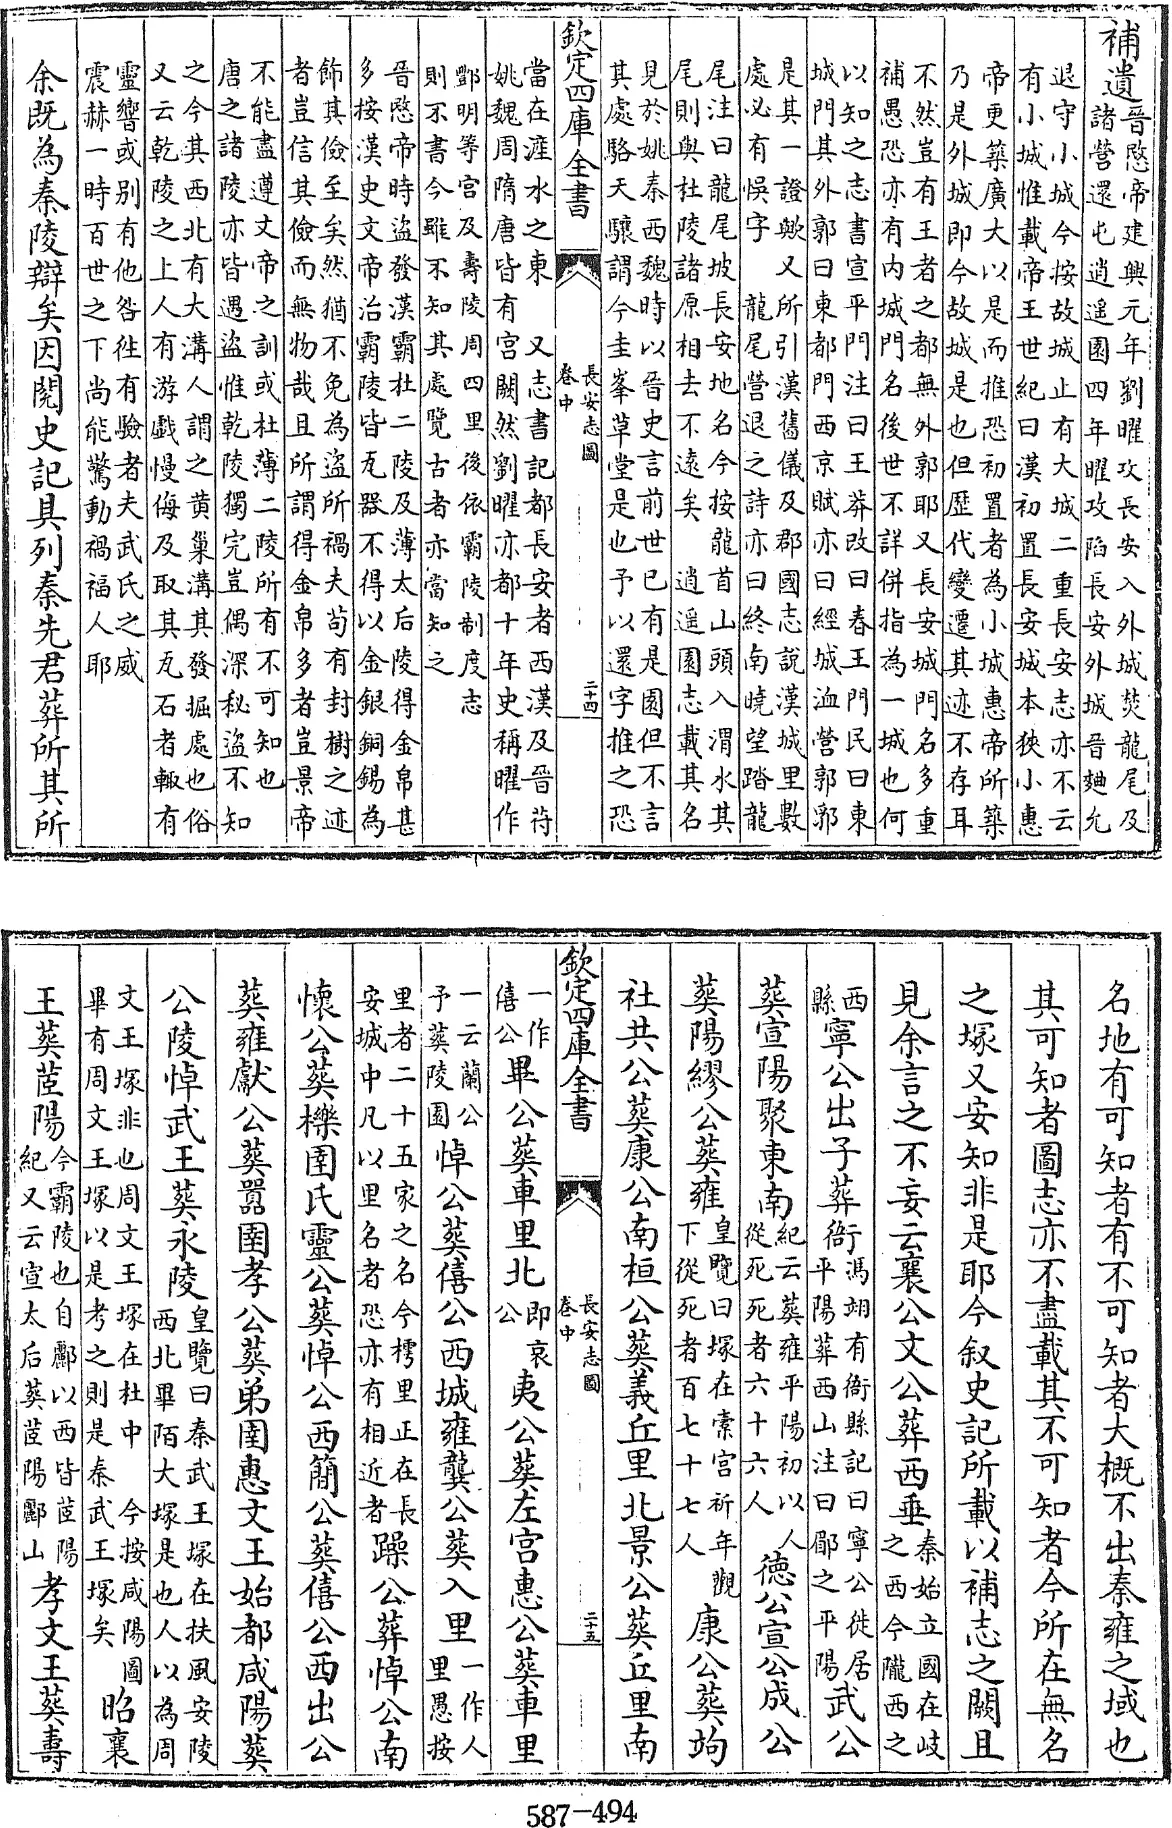 補遺晉愍帝建興元年劉曜攻長安入外城焚龍尾及
諸營還屯逍遥園四年曜攻陷長安外城晉麯允
退守小城今按故城止有大城二重長安志亦不云
有小城惟載帝王世紀曰漢初置長安城本狹小惠
帝更築廣大以是而推恐初置者為小城惠帝所築
乃是外城即今故城是也但歷代變遷其迹不存耳
不然豈有王者之都無外郭耶又長安城門名多重
補愚恐亦有内城門名後世不詳併指為一城也何
以知之志書宣平門注曰王莽改曰春王門民曰東
城門其外郭曰東都門西京賦亦曰經城洫營郭郛
是其一證歟又所引漢舊儀及郡國志說漢城里數
處必有悞字　龍尾營退之詩亦曰終南曉望踏龍
尾注曰龍尾坡長安地名今按龍首山頭入渭水其
尾則與杜陵諸原相去不遠矣　逍遥園志載其名
見於姚秦西魏時以晉史言前世已有是園但不言
其處駱天驤謂今圭峯草堂是也予以還字推之恐
欽定四庫全書
長安志圖
卷中
二十四
當在滻水之東　又志書記都長安者西漢及晉苻
姚魏周隋唐皆有宫闕然劉曜亦都十年史稱曜作
酆明等宫及壽陵周四里後依霸陵制度志
則不書今雖不知其處覽古者亦當知之
晉愍帝時盜發漢霸杜二陵及薄太后陵得金帛甚
多按漢史文帝治霸陵皆瓦器不得以金銀銅錫為
飾其儉至矣然猶不免為盜所禍夫茍有封樹之迹
者豈信其儉而無物哉且所謂得金帛多者豈景帝
不能盡遵文帝之訓或杜薄二陵所有不可知也
唐之諸陵亦皆遇盜惟乾陵獨完豈偶深秘盜不知
之今其西北有大溝人謂之黄巢溝其發掘處也俗
又云乾陵之上人有游戲慢侮及取其瓦石者輒有
靈響或别有他咎徃有驗者夫武氏之威
震赫一時百世之下尚能驚動禍福人耶
余既為秦陵辯矣因閲史記具列秦先君葬所其所
名地有可知者有不可知者大概不出秦雍之域也
其可知者圖志亦不盡載其不可知者今所在無名
之塚又安知非是耶今叙史記所載以補志之闕且
見余言之不妄云襄公文公葬西垂秦始立國在岐
之西今隴西之
西
縣寧公出子葬衙馮翊有衙縣記曰寧公徙居
平陽葬西山注曰郿之平陽武公
葬宣陽聚東南紀云葬雍平陽初以人
從死死者六十六人德公宣公成公
葬陽繆公葬雍皇覽曰塚在橐宫祈年觀
下從死者百七十七人康公葬竘
社共公葬康公南桓公葬義丘里北景公葬丘里南
欽定四庫全書
長安志圖
卷中
二十五
一作
僖公畢公葬車里北即哀
公夷公葬左宫惠公葬車里
一云蘭公
予葬陵園悼公葬僖公西城雍龔公葬入里一作人
里愚按
里者二十五家之名今樗里正在長
安城中凡以里名者恐亦有相近者躁公葬悼公南
懷公葬櫟圉氏靈公葬悼公西簡公葬僖公西出公
葬雍獻公葬嚣圉孝公葬弟圉惠文王始都咸陽葬
公陵悼武王葬永陵皇覽曰秦武王塚在扶風安陵
西北畢陌大塚是也人以為周
文王塚非也周文王塚在杜中　今按咸陽圖
畢有周文王塚以是考之則是秦武王塚矣昭襄
王葬茝陽今霸陵也自酈以西皆茝陽
紀又云宣太后葬茝陽酈山孝文王葬壽
587-494